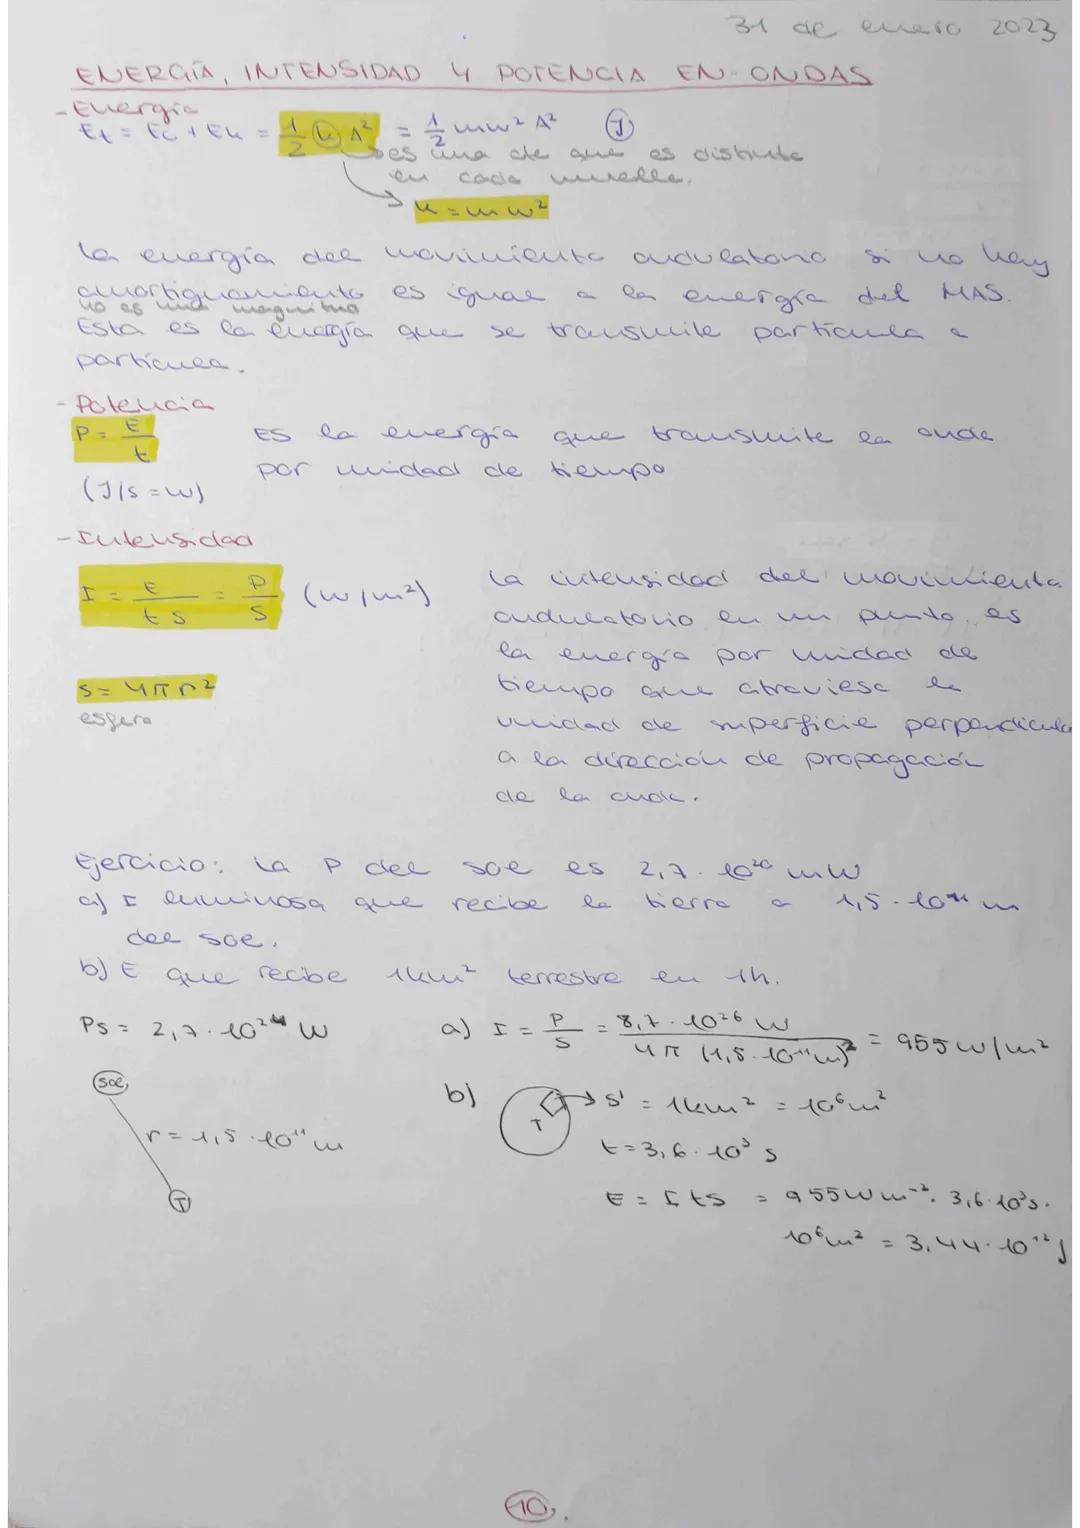 31 de enero 2023
ENERGÍA, INTENSIDAD Y POTENCIA EN ONDAS
- Energía
Et = Ec + Ek = 1/2 k A² = 1/2 mw² A² (J)
es una cte que es distinta
en cada muelle.
k = m w²
La energía del movimiento ondulatorio si no hay
amortiguamiento es igual a la energía del MAS.
no es una magnitud
Esta es la energía que se transmite partícula a
partícula.
- Potencia
P = E/t
Es la energía que transmite la onda
por unidad de tiempo
(J/s = w)
- Intensidad
I = E/t s = P/S (w/m²)
La intensidad del movimiento
ondulatorio en un punto es
la energía por unidad de
tiempo que atraviesa la
unidad de superficie perpendicular
a la dirección de propagación
de la onda.
S = 4πr²
esfera
Ejercicio: La P del sol es 2,7 · 10²⁰ mW
a) I luminosa que recibe la tierra a 1,5 · 10¹¹ m
del sol.
b) E que recibe 1km² terrestre en 1h.
Ps = 2,7 · 10²⁴ W
a) I = P/S = 8,7 · 10²⁶ w / 4π (1,5 · 10¹¹ m)² = 955 w/m²
sol
r = 1,5 · 10¹¹ m
T
b)
T
S' = 1km² = 10⁶ m²
t = 3,6 · 10³ s
E = I t S = 955 W m⁻² · 3,6 · 10³ s ·
10⁶ m² = 3,44 · 10⁺¹² J
10